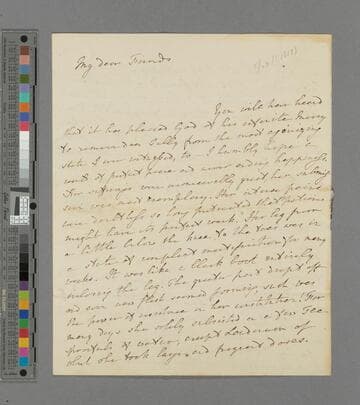 My dear Friends
You will have heard
that it has pleased God of his infinite Mercy
to remove dear Sally from the most agonizing
state I ever witnessed, to I humbly hope a
world of perfect peace and never ending happiness.
Her sufferings were unmeasurably great her submiss
sion was exemplary. Her intense pains
were doubtless so long protracted that patience
might have its perfect work. Her leg from
a little below the knee to the toes was in
a state of compleat mortification for many
weeks. It was like a black boot entirely
enclosing the leg. The putrid part dropt off
and even new flesh seemed forming, such was
the power of resistance in her constitution! For
many days she wholy subsisted on a few Tea-
spoonfuls of water, except Laudanum of
which she took large and frequent doses.